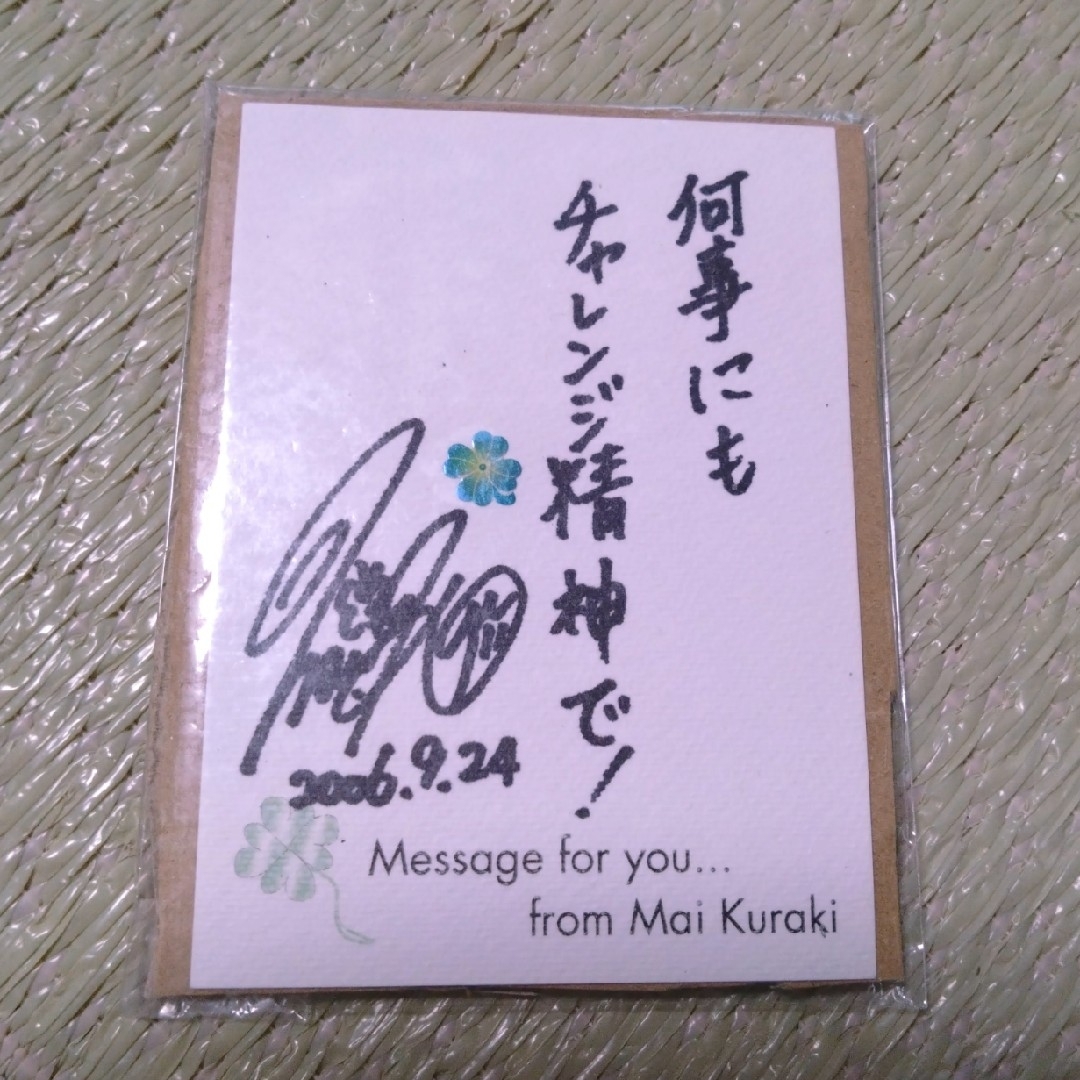 何事にも
チャレンジ精神で!
2006.9.24
Message for you...
from Mai Kuraki